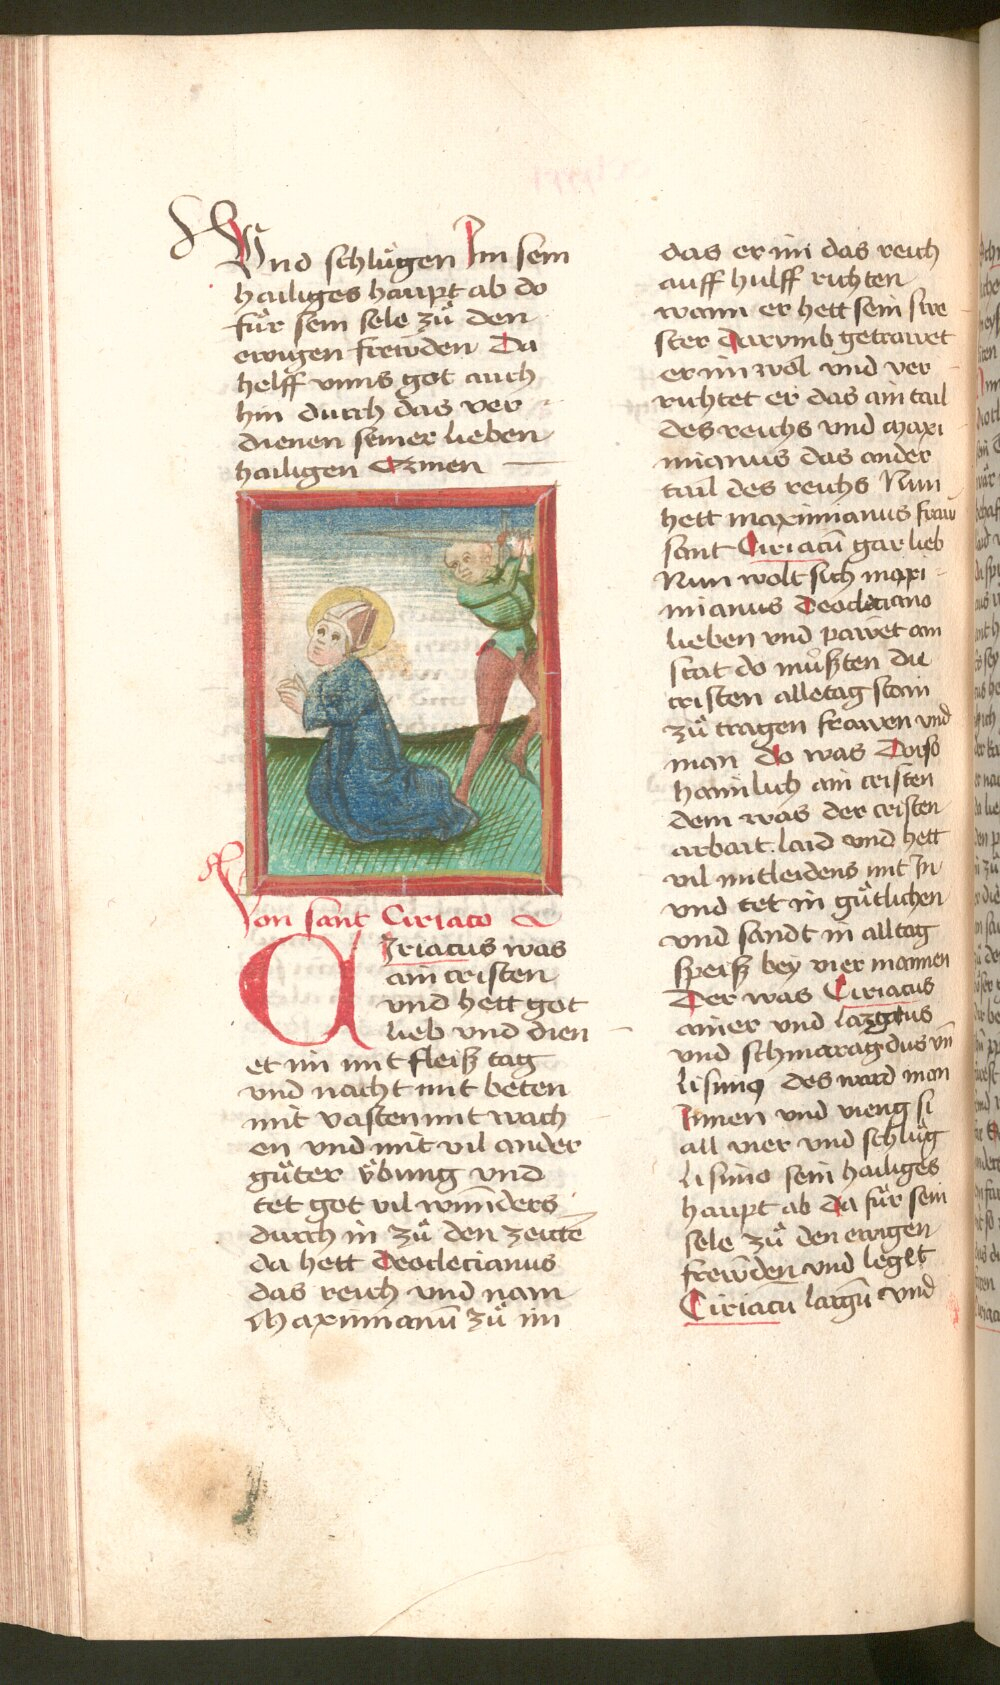 Vnd schlůgen Im sein
hailiges haupt ab do
fůr sein sele zů den
ewigen frewden Da
helff vnns got auch
hin durch das ver
dienen seiner lieben
hailigen Amen
Von sant Ciriaco
Ciriacus was
ain cristen
vnd hett got
lieb vnd dien
et im mit fleiß tag
vnd nacht mit beten
mit vasten mit wach
en vnd mit vil ander
gůter v̊bung vnd
tet got vil wunnders
durch in zů den zeitē
da hett Deocletianus
das reich vnd nam
Maximianū zů im
das er im das reich
auff hulff richten
wann er hett sein swe
ster Darvmb getrawet
er im wol vnd ver
richtet er das ain tail
des reichs vnd maxi
mianus das ander
tail des reichs Nun
hett maximianus fraw
sant Ciriacū gar lieb
Nun wolt sich maxi
mianus Deocleciano
lieben vnd pawet ain
stat do můßten die
cristen alletag stain
zů tragen frawen vnd
man do was Tyrso
haimlich ain cristen
dem was der cristen
arbait laid vnd hett
vil mitleidens mit In
vnd tet in gůtlichen
vnd sandt in alltag
speiß bey vier mannen
Der was Ciriacus
ainer vnd largus
vnd schmaragdus vn̄
lisimo des ward man
Innen vnd vieng si
all vier vnd schlůg
lisimo sein hailiges
haupt ab Da fůr sein
sele zů den ewigen
frewden vnd leget
Ciriacū largū vnd